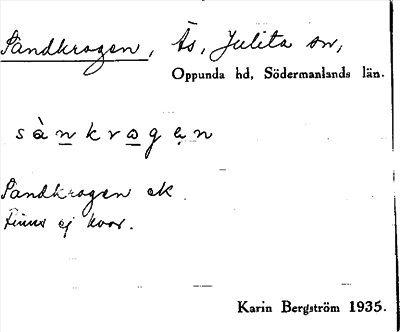 Sandkrogen, Ås, Julita sn,
Oppunda hd, Södermanlands län.
sàn̲kro̲gə̣n
Sandkrogen ek.
Finns ej kvar.
Karin Bergström 1935.